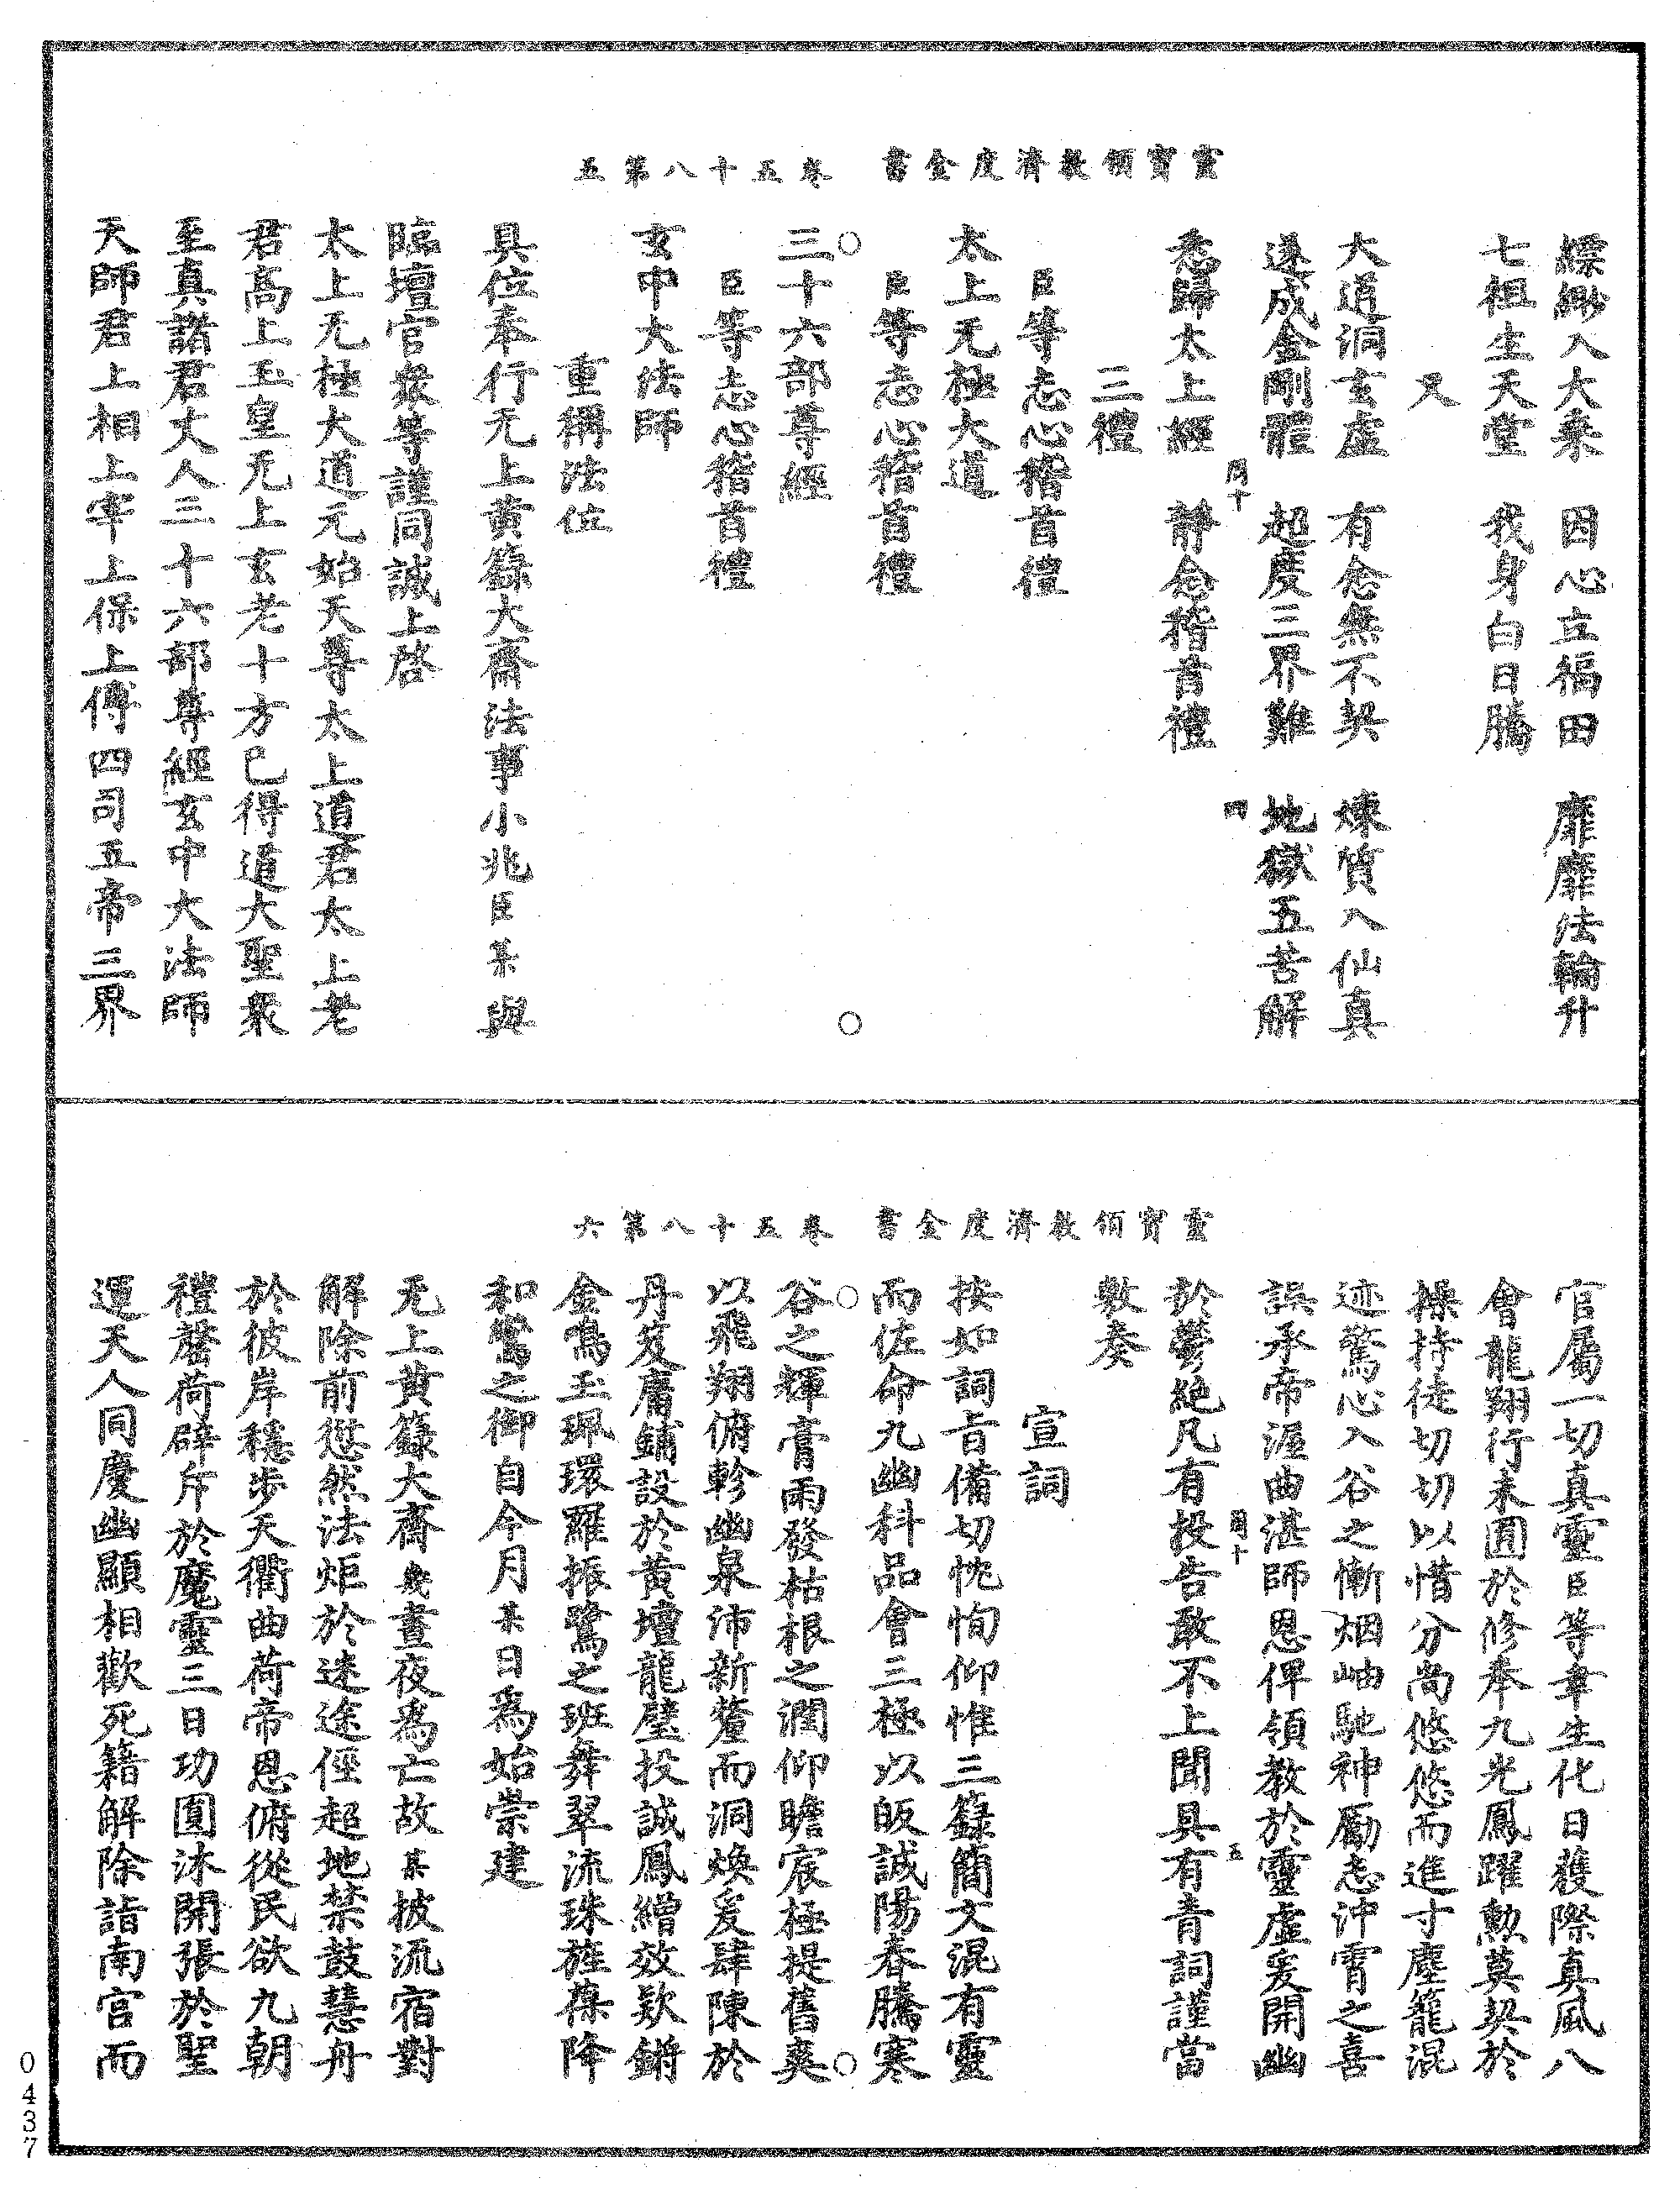 靈寶領教濟度金書　卷五十八第五
縹緲入大乘　因心立福田　靡靡法輪升
七祖生天堂　我身白日騰
又
大道洞玄虛　有念無不契　煉質入仙真
遂成金剛體　超度三界難　地獄五苦解
悉歸太上經　靜念稽首禮
三禮
臣等志心稽首禮
太上无極大道
臣等志心稽首禮
三十六部尊經
臣等志心稽首禮
玄中大法師
重稱法位
具位奉行无上黃籙大齋法事小兆臣某與
臨壇官眾等謹同誠上啓
太上无極大道元始天尊太上道君太上老
君高上玉皇无上玄老十方已得道大聖眾
至真諸君丈人三十六部尊經玄中大法師
天師君上相上宰上保上傅四司五帝三界
靈寶領教濟度金書　卷五十八第六
官屬一切真靈臣等幸生化日獲際真風八
會龍翔行未圓於修奉九光鳳躍勲莫契於
操持徒切切以惜分尚悠悠而進寸塵籠混
迹驚心入谷之慚烟岫馳神勵志沖霄之喜
誤承帝渥曲湛師恩俾領教於靈虛爰開幽
於鬱絕凡有投告敢不上聞具有青詞謹當
敷奏
宣詞
按如詞旨備切忱恂仰惟三籙簡文混有靈
而佐命九幽科品會三極以皈誠陽春騰寒
谷之輝膏雨發枯根之潤仰瞻宸極提舊奭
以飛翔俯軫幽泉沛新釐而洞煥爰肆陳於
丹笈庸鋪設於黃壇龍璧投誠鳳繒效欵鏘
金鳴玉珮環羅振鷺之班舞翠流珠旌葆降
和鸞之御自今月某日為始崇建
无上黃籙大齋幾晝夜為亡故某披流宿對
解除前愆然法炬於迷途徑超地禁鼓慧舟
於彼岸穩步天衢曲荷帝恩俯從民欲九朝
禮罄荷辟斥於魔靈三日功圓沐開張於聖
運天人同慶幽顯相歡死籍解除詣南宮而
0437